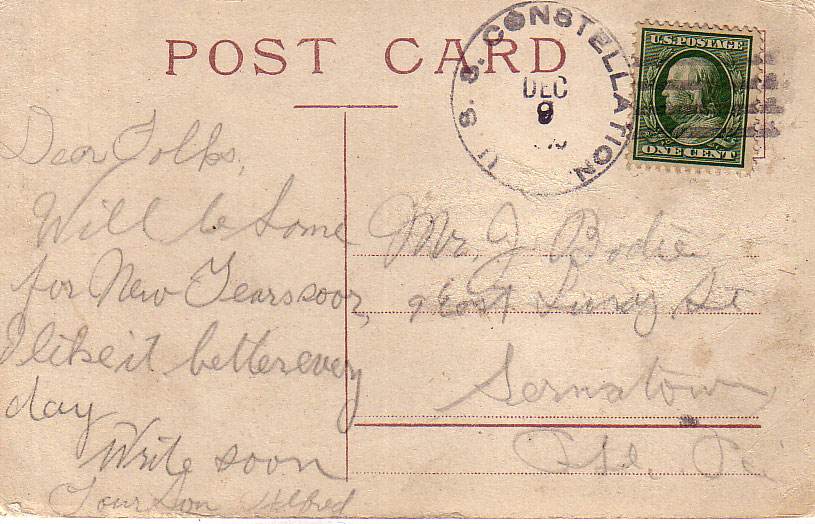 POST CARD
U. S. S. CONSTELLATION
DEC
9
U.S. POSTAGE
ONE CENT
Dear Folks,
Will be home
for New Years
I like it better every
day
Write soon
Your Son Alfred
Mr. J. Bodie
9 East St